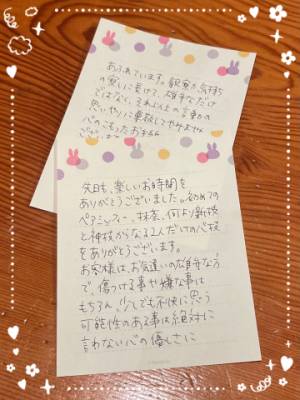 先日も、楽しいお時間を
ありがとうございました。初めての
ペア、抹茶、何より新技
と神技からなる2人だけの心技
をありがとうございます。
お客様は、お気遣いの雄弁な方
で、傷つける事や嫌な事は
もちろん、少しでも不快に思う
可能性のある事は絶対に
言わない心の優しさに
あふれています。観察が、気持ち
の察しに長けて、雄弁なだけ
ではなく、それ以上の言動が
思いやりに直結してやみません
心のこもったお手紙